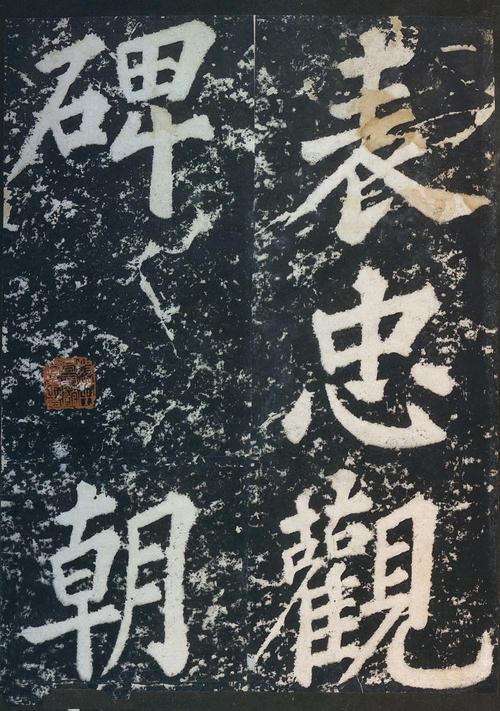 表忠觀
碑
朝